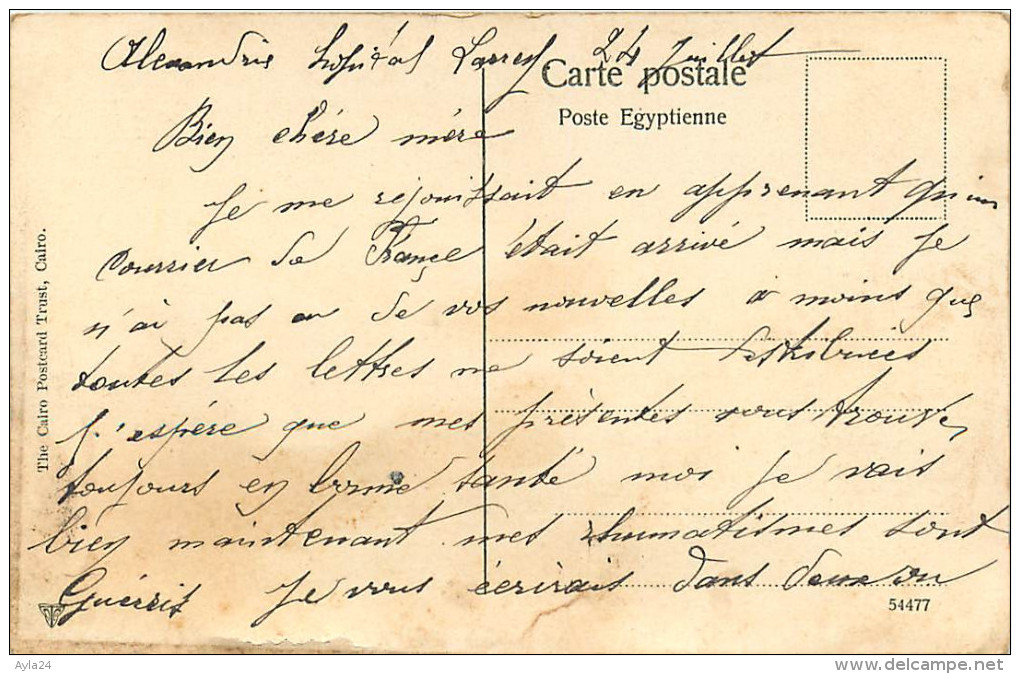 Alexandrie hopital Larrey 24 Juillet
Carte postale
Poste Egyptienne
Bien chére mére
Je me rejouissait en apprenant qu'un
courrier de Françe était arrivé mais Je
n'ai pas eu de vos nouvelles a moins que
toutes les lettres ne soient distribuées
J'espére que mes présentes vous trouve
toujours en bonne santé moi Je vais
bien maintenant mes rhumatismes sont
Guérris Je vous écrirais dans deux ou
54477
The Cairo Postcard Trust, Cairo.
Ayla24
www.delcampe.net